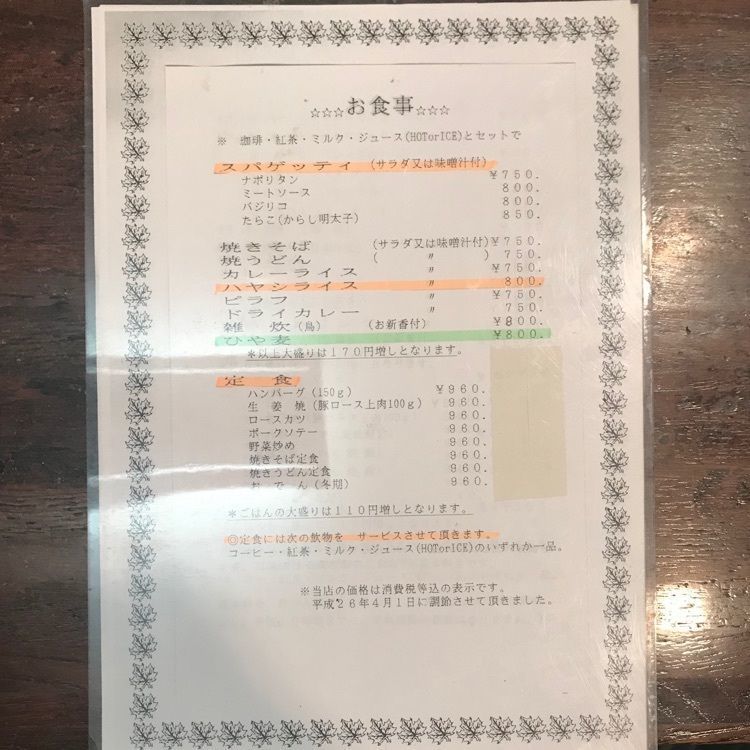 ☆☆☆お食事☆☆☆
※ 珈琲・紅茶・ミルク・ジュース(HOTorICE)とセットで
スパゲッティ (サラダ又は味噌汁付)
ナポリタン ￥７５０.
ミートソース ８００.
バジリコ ８００.
たらこ(からし明太子) ８５０.
焼きそば (サラダ又は味噌汁付) ￥７５０.
焼うどん ( 〃 ) ７５０.
カレーライス 〃 ￥７５０.
ハヤシライス 〃 ８００.
ピラフ 〃 ￥７５０.
ドライカレー 〃 ７５０.
雑 炊(鳥) (お新香付) ￥８００.
ひや麦 ￥８００.
＊以上大盛りは１７０円増しとなります。
定 食
ハンバーグ(150ｇ) ￥９６０.
生 姜 焼(豚ロース上肉100ｇ) ９６０.
ロースカツ ９６０.
ポークソテー ９６０.
野菜炒め ９６０.
焼きそば定食 ９６０.
焼きうどん定食 ９６０.
お で ん(冬期) ９６０.
＊ごはんの大盛りは１１０円増しとなります。
◎定食には次の飲物を サービスさせて頂きます。
コーヒー・紅茶・ミルク・ジュース(HOTorICE)のいずれか一品。
※当店の価格は消費税等込の表示です。
平成２６年４月１日に調節させて頂きました。